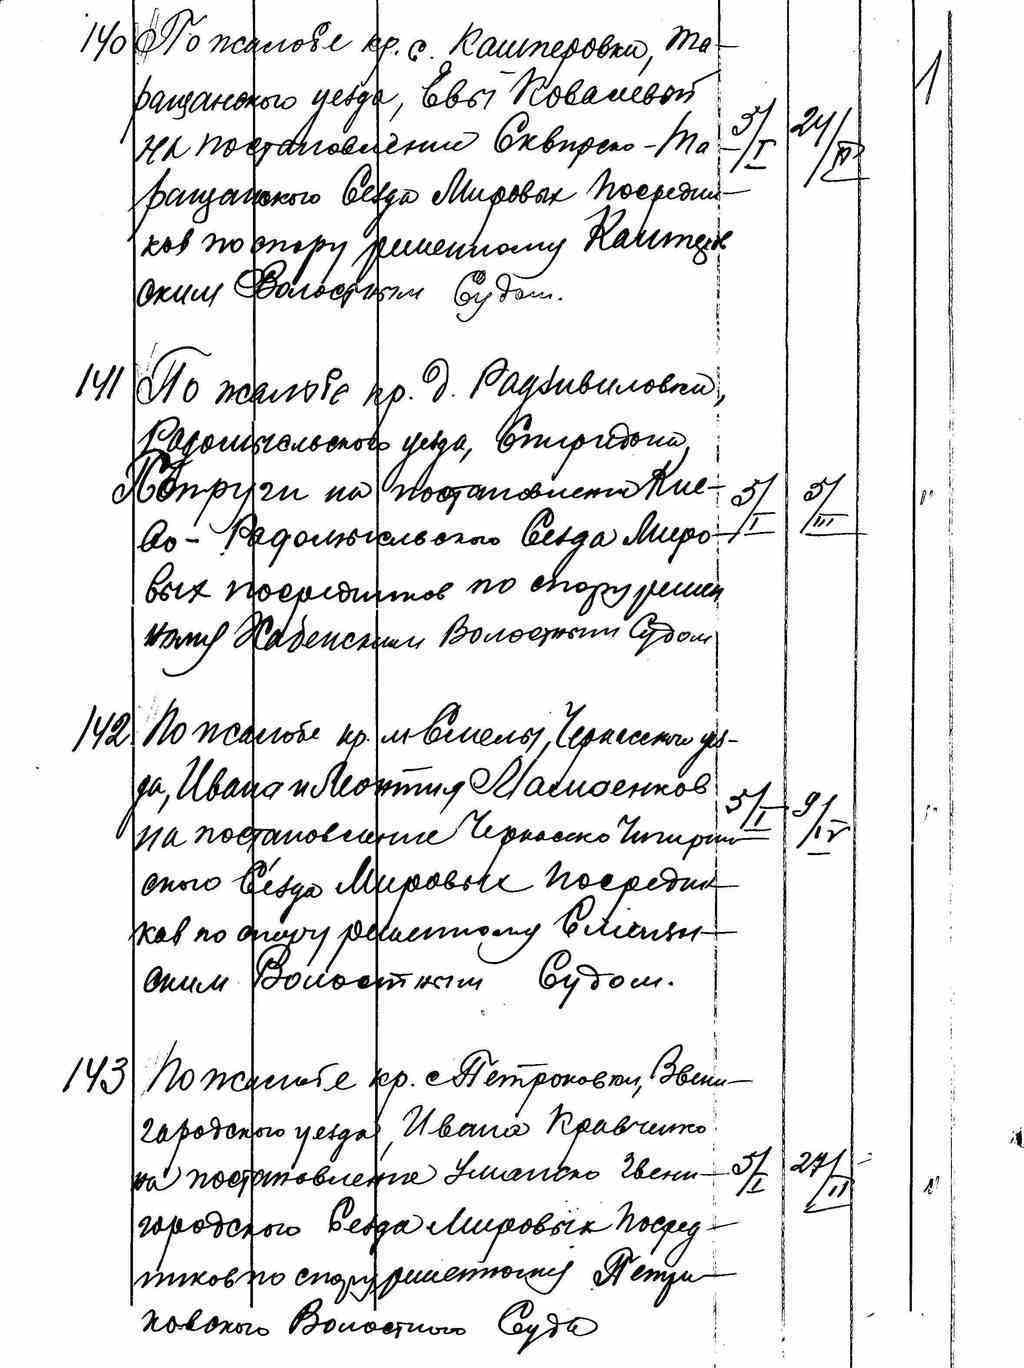 140 По жалобе кр. с. Кашперовки, Та-
ращанского уезда, Евы Ковалевой
на постановление Сквирско-Та- 5/I 24/
ращанского Сезда Мировых Посредни-
ков по спору решенному Кашперов
ским Волостным Судом.
141 По жалобе кр. д. Радзивиловки,
Радомысльского уезда, Спиридона
Попруги на постановление Кие- 5/I 5/III
во-Радомысльского Сезда Миро-
вых посредников по спору решен
ному Хабенским Волостным Судом
142 По жалобе кр. м Смелы, Черкасского уез-
да, Ивана и Леонтия
на постановление Черкасско Чигирин 5/I 9/IV
ского Сезда Мировых Посредни-
ков по спору решенному Смелян-
ским Волостным Судом.
143 По жалобе кр. с Петроковки, Звени-
городского уезда, Ивана Кравченко
на постановление Уманско Звени- 5/I 27/II
городского Сезда Мировых Посред-
ников по спору решенному Петри-
ковского Волостного Суда